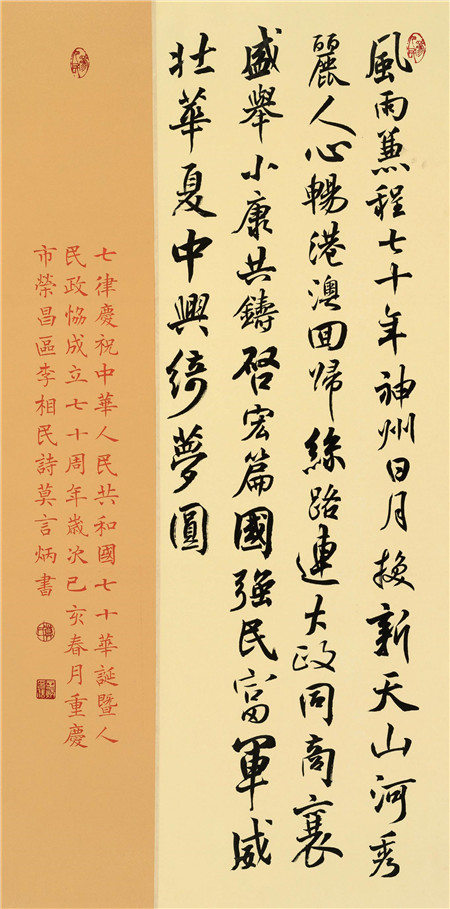 風雨兼程七十年神州日月換新天山河秀
麗人心暢港澳回歸絲路連大政同商襄
盛舉小康共鑄啓宏篇國強民富軍威
壯華夏中興綺夢圓
七律慶祝中華人民共和國七十華誕暨人
民政協成立七十周年歲次己亥春月重慶
市榮昌區李相民詩莫言炳書